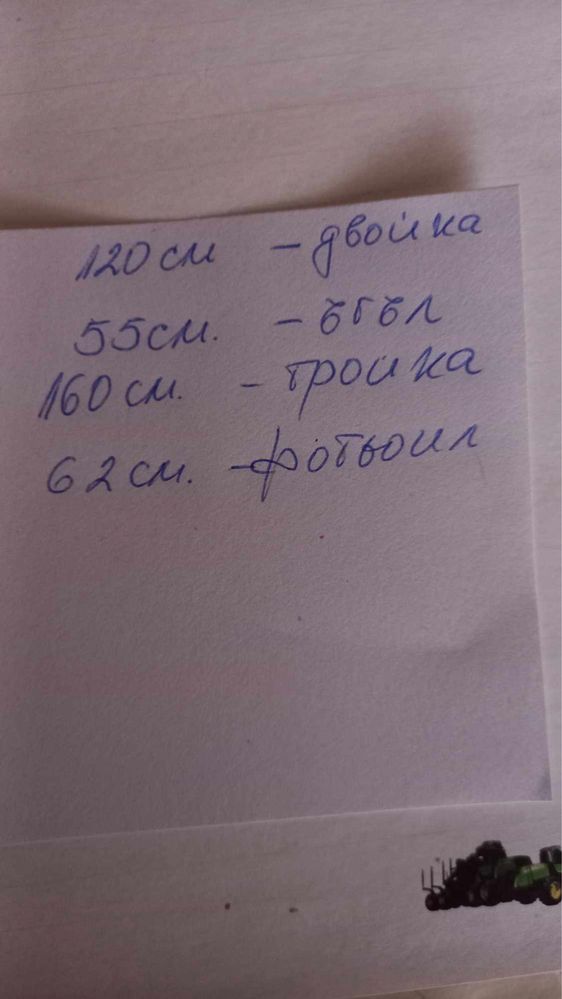 120см - двойка
55см. - ъгъл
160см. - тройка
62см. - фотьойл